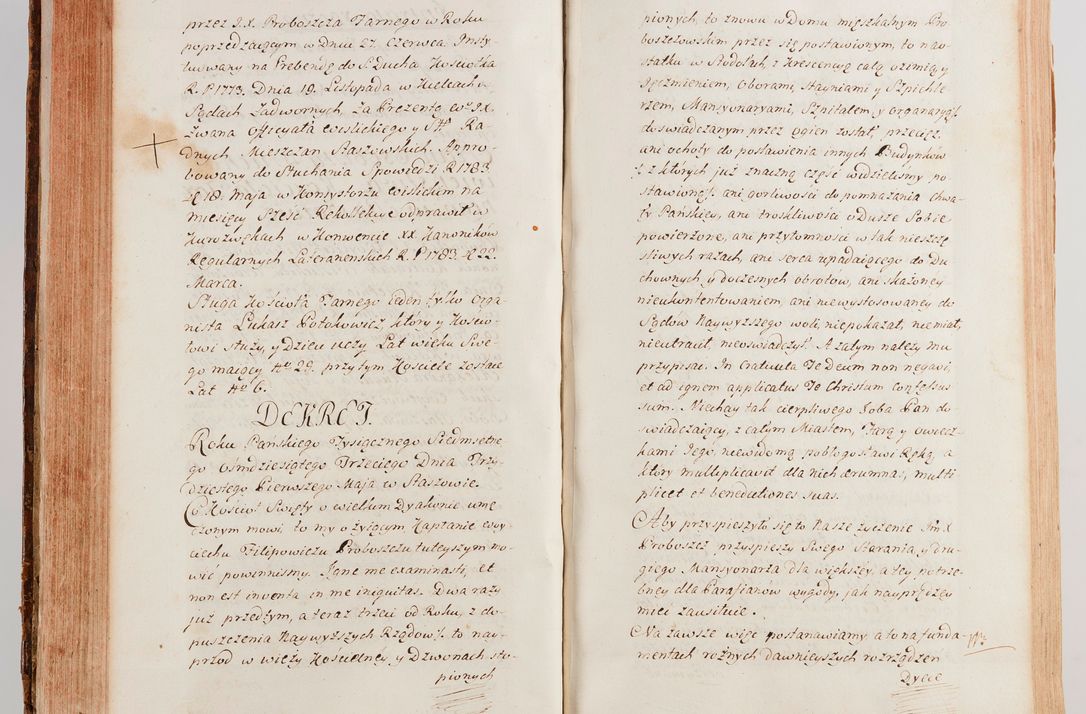 przez I.X. Proboszcza Farnego w Roku
poprzedzaiącym w Dniu 27. Czerwca Insty-
tuowany na Prebendę do S. Ducha Kościołka
R. P. 1773. Dnia 19. Listopada w Kielcach w
Sądach Zadwornych, za Prezentą
zwana Officyała Wislickiego y Ra-
dnych Mieszczan Staszowskich. Appro-
bowany do Słuchania Spowiedzi R. 1783
d. 18. Maja w Konsystorzu Wislickim na
miesięcy Sześć Rekollekcye odprawił w
Kurozwękach w Konwencie XX. Kanonikow
Regularnych Lateranenskich R. P. 1783. d. 22.
Marca.
Sługa Kościoła Farnego Ieden tylko Orga-
nista Łukasz Potokowicz, który y Kościo-
łowi służy, y Dzieci uczy Lat wieku Swe-
go maiący No 29. przy tym Kościele zostaie
Lat No 6.
DEKRET.
Roku Pańskiego Tysiącznego Siedmsetne-
go Osmdziesiątego Trzeciego Dnia Trzy-
dziestego Pierwszego Maja w Staszowie.
Co Kościoł Swięty o wielkim Dyakonie umę-
czonym mowi, to my o żyiącym Kapłanie Woy-
ciechu Filipowiczu Proboszczu tuteyszym mo-
wić powinnismy. Igne me examinasti, et
non est inventa in me iniquitas. Dwa razy
już przedtym, a teraz trzeci od Roku, z do-
puszczenia Naywyższych Rządow to nay-
przod w wieży Kościelney, y Dzwonach sto-
pionych
pionych, to znowu w Domu mięszkalnym Pro
boszczowskim przez się postawionym, to nao-
statku w Stodołach, z Krescencyą całą ozimią y
Jęczmieniem, Oborami, Stayniami y Spichle-
rzem, Mansyonaryami, Szpitalem, y Organaryą
doswiadczanym przez ogień został, przecięż
ani ochoty do postawienia innych Budynków
/: z których już znaczną część widzielismy po
stawioney :/ ani gorliwości do pomnażania chwa-
ły Pańskiey, ani troskliwości o Dusze Sobie
powierzone, ani przytomności w tak nieszczę
sliwych razach, ani serca upadaiącego do Du
chownych y doczesnych obrotow, ani skażoney
nieukontentowaniem, ani niewystosowaney do
Sądow Naywyższego woli, niepokazał, niemiał,
nieutracił, nieoswiadczył. A zatym należy mu
przypisać. In Craticula Te Deum non negavi,
et ad ignem applicatus Te Christum confessus
sum. Niechay tak cierpliwego Joba Pan do-
swiadczaiący, z całym Miastem, Farą y owiecz-
kami Jego, niewidomą pobłogosławi Ręką, a
ktory multiplicavit dla nich ærumnas, multi
plicet et benedictiones suas.
Aby przyspieszyli się to Nasze życzenie Im X
Proboszcz, przyspieszy Swego Starania, y dru-
giego Mansyonarza dla większey, a tey potrze-
bney dla Parafianow wygody, jak nayprędzey
mieć zausiłuie.
Na zawsze więc postanawiamy a to na funda-
mentach rożnych dawnieyszych rozrządzen
Dyece